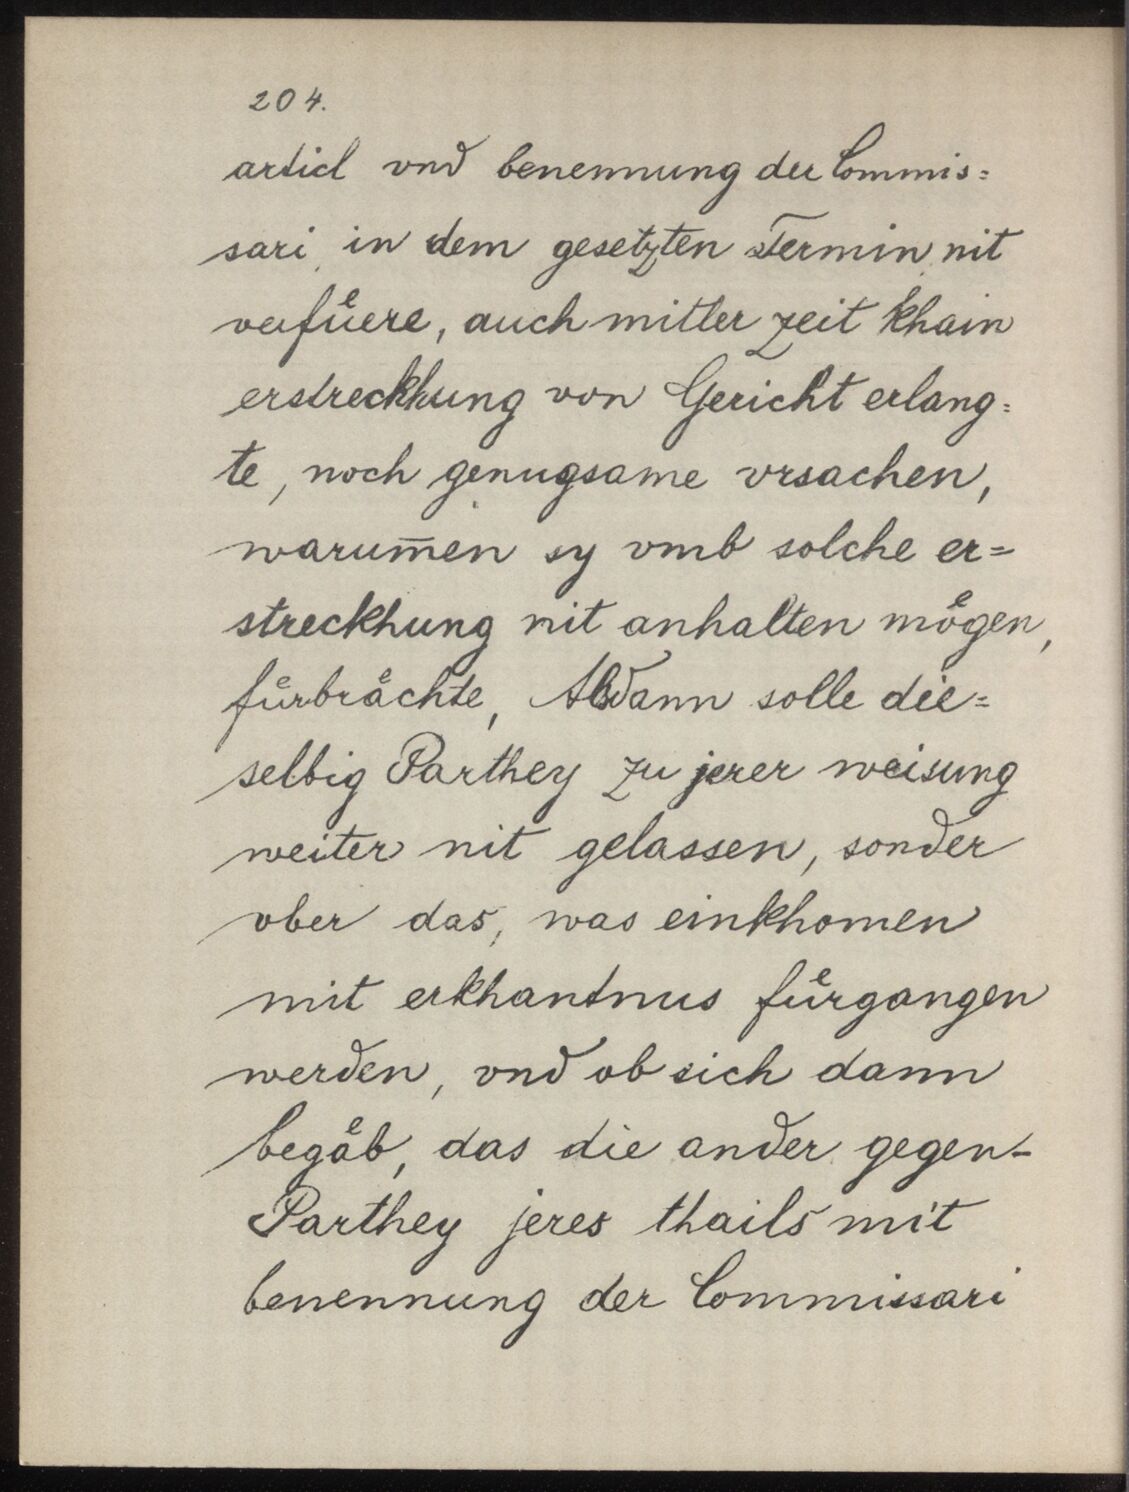 204.
articl vnd benennung der Commis=
sari in dem gesetzten Termin nit
verfuͤere, auch mitler zeit khain
erstreckhung von Gericht erlang=
te, noch genugsame vrsachen,
warum̅en sy vmb solche er=
streckhung nit anhalten moͤgen,
fuͤrbraͤchte, Alsdann solle die=
selbig Parthey zu jerer weisung
weiter nit gelassen, sonder
vber das, was einkhomen
mit erkhantnus fuͤrgangen
werden, vnd ob sich dann
begaͤb, das die ander gegen-
Parthey jeres thails mit
benennung der Commissari